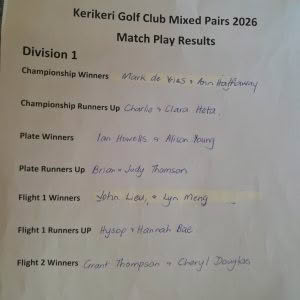 Kerikeri Golf Club Mixed Pairs 2026
Match Play Results
Division 1
Championship Winners Mark de Vries & Ann Hathaway
Championship Runners Up Charlie & Clara Heta
Plate Winners Ian Howells & Alison Young
Plate Runners Up Brian & Judy Thomson
Flight 1 Winners John Lieu & Lyn Meng
Flight 1 Runners UP Hysop & Hannah Bae
Flight 2 Winners Grant Thompson & Cheryl Douglas